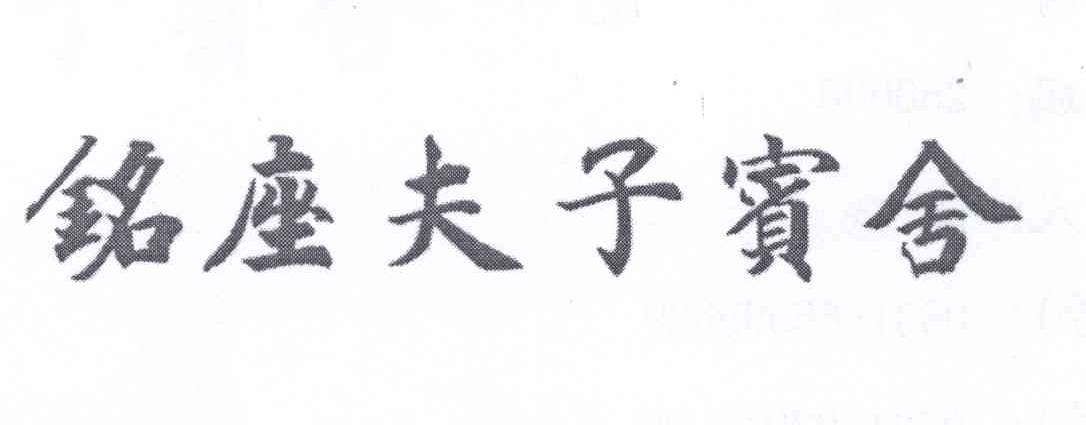 銘座夫子賓舍